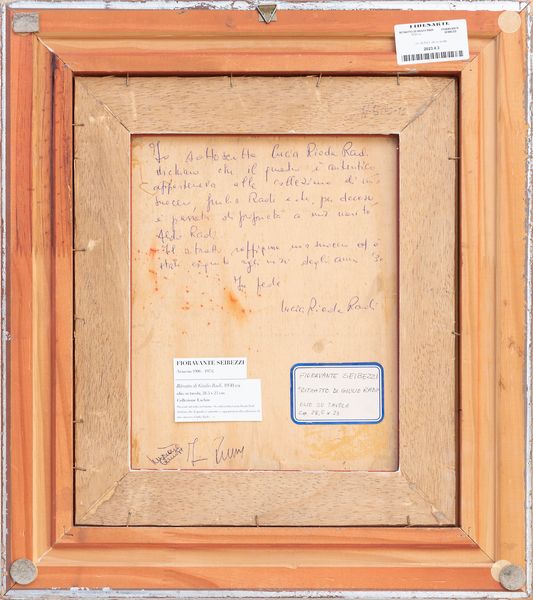 FIDESARTE
RITRATTO DI GIULIO RADI
2023.6.2
Io sottoscritta Lucia Rioda Radi
dichiaro che il quadro è autentico
apparteneva alla collezione di mio
suocero Giulio Radi e che, per decesso
è passato di proprietà a mio marito
Aldo Radi.
Il ritratto raffigura mio suocero ed è
stato eseguito agli inizi degli anni '30
In fede
Lucia Rioda Radi
FIORAVANTE SEIBEZZI
Venezia 1906 - 1974
Ritratto di Giulio Radi, 1930 ca
olio su tavola, 28,5 x 23 cm
Collezione
FIORAVANTE SEIBEZZI
"RITRATTO DI GIULIO RADI"
OLIO SU TAVOLA
CM 28,5 x 23